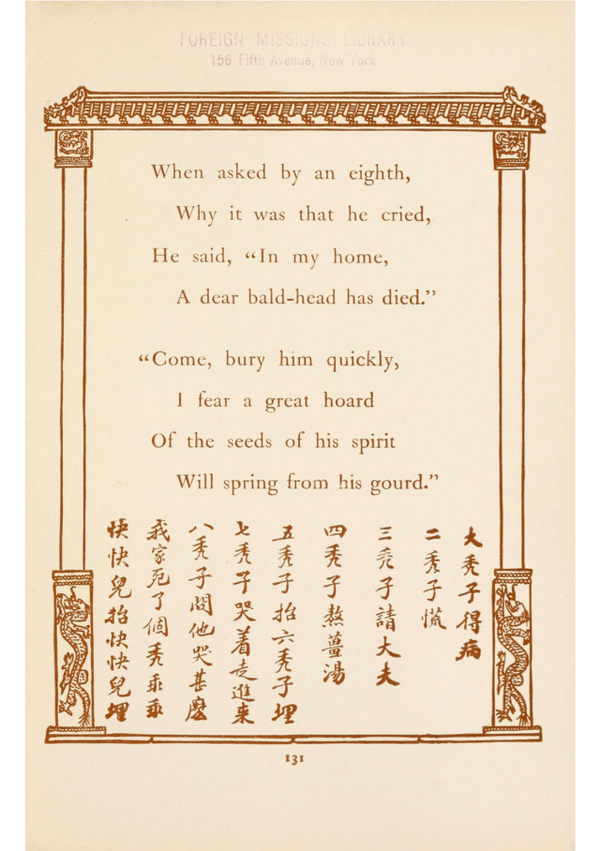 FOREIGN MISSIONS LIBRARY
156 Fifth Avenue, New York
When asked by an eighth,
Why it was that he cried,
He said, “In my home,
A dear bald-head has died.”
“Come, bury him quickly,
I fear a great hoard
Of the seeds of his spirit
Will spring from his gourd.”
大秃子得病
二秃子慌
三秃子請大夫
四秃子熬薑湯
五秃子抬六秃子埋
七秃子哭着走進来
八秃子問他哭甚麽
我家死了個秃乖乖
快快兒抬快快兒埋
131